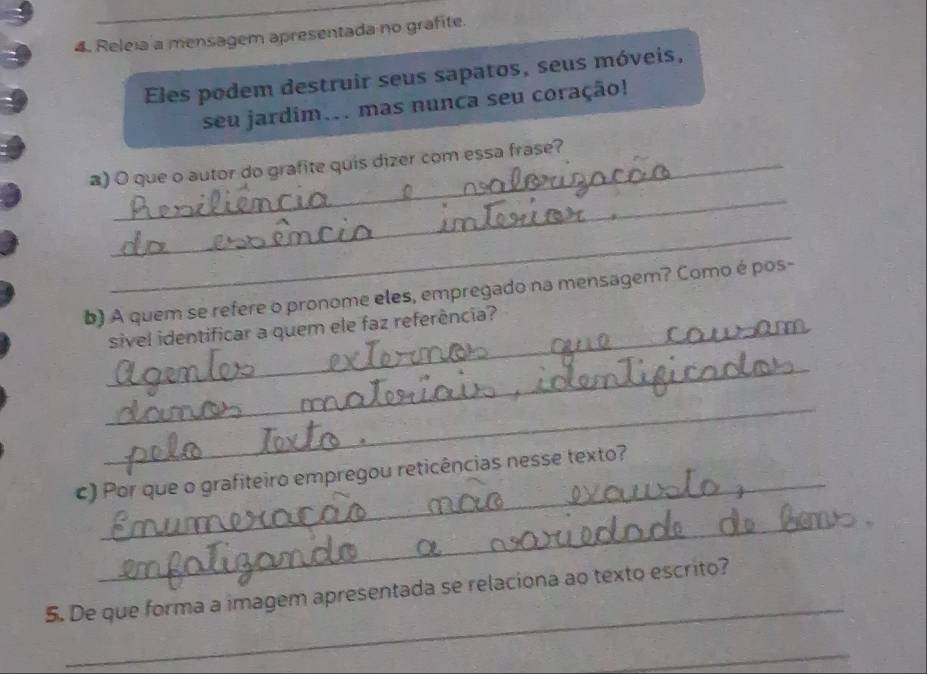 4. Releia a mensagem apresentada no grafite.
Eles podem destruir seus sapatos, seus móveis,
seu jardim... mas nunca seu coração!
a) O que o autor do grafite quis dizer com essa frase?
Resiliência e valorização
da essência interior.
b) A quem se refere o pronome eles, empregado na mensagem? Como é pos-
sível identificar a quem ele faz referência?
agentes externos que causam
danos materiais, identificados
pelo texto.
c) Por que o grafiteiro empregou reticências nesse texto?
Enumeração não exausta,
enfatizando a variedade de bens.
5. De que forma a imagem apresentada se relaciona ao texto escrito?